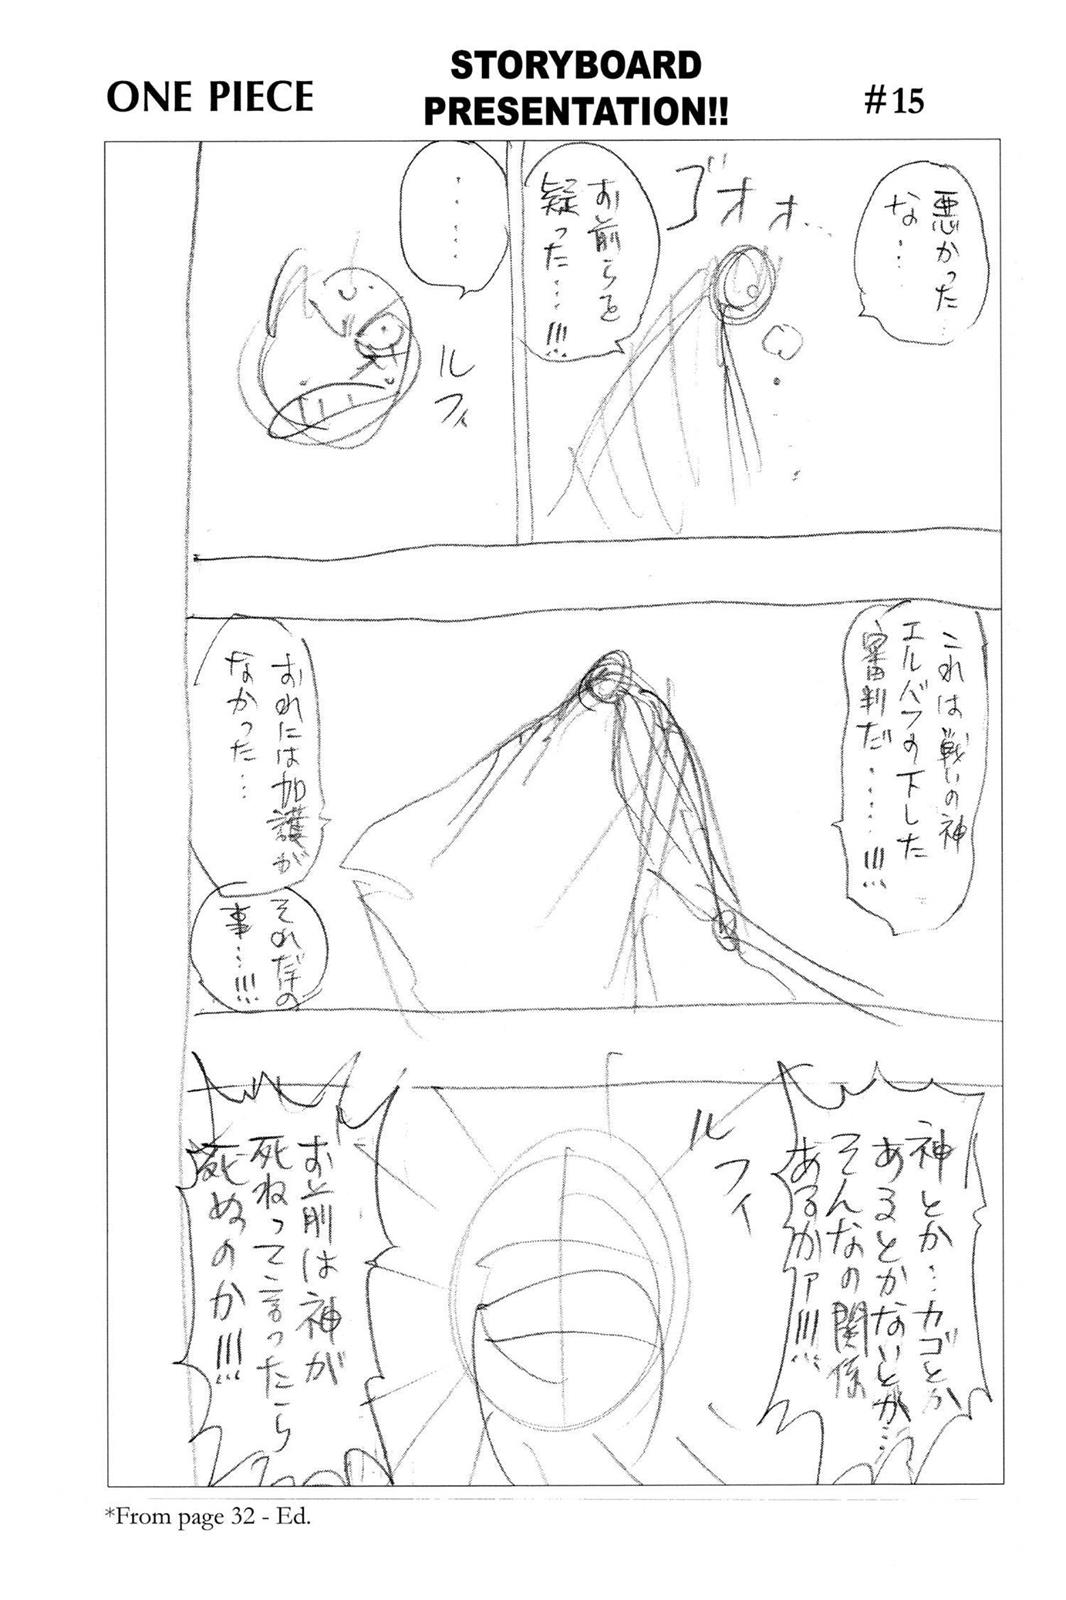 ONE PIECE
STORYBOARD
PRESENTATION!!
#15
悪かった…
な…
ゴオオ…
お前らを
疑った…!!!
・・・・・
ルフィ
これは戦いの神
エルバフの下した
審判だ……!!!
おれには加護が
なかった…
それだけの
事…!!!
神とか…カゴとか
あるとかないとか…
そんなの関係
あるかァ!!!
ルフィ
お前は神が
死ねって言ったら
死ぬのか!!!
*From page 32 - Ed.